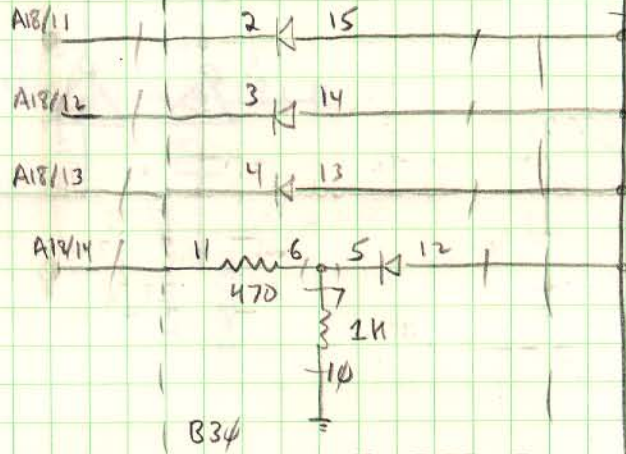 A18/11 2 15
A18/12 3 14
A18/13 4 13
A18/14 11 6 5 12
470 7
1K
1Ø
B3Ø